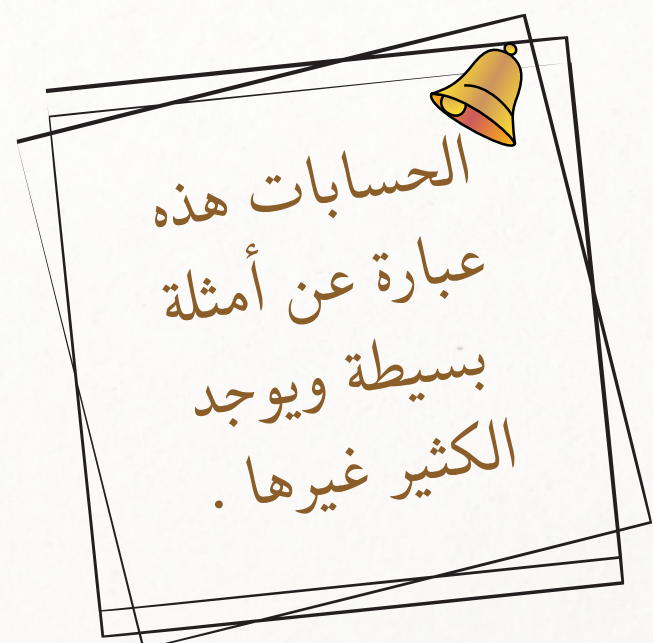 الحسابات هذه
عبارة عن أمثلة
بسيطة ويوجد
الكثير غيرها .